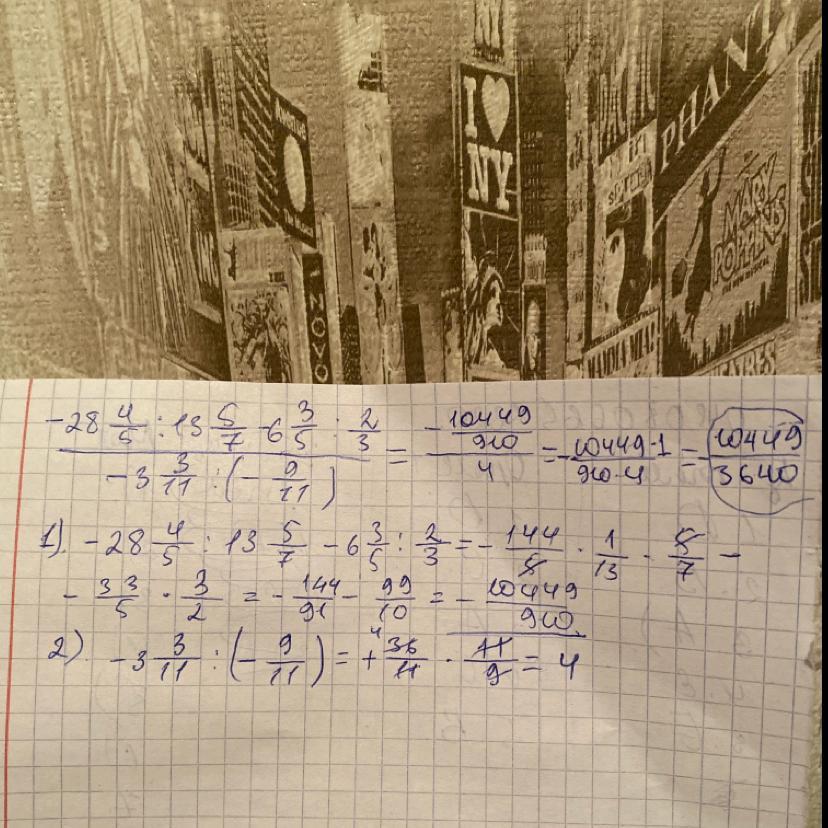 NY
I ♥ NY
PHANT
MARY POPPINS
NOVO
MAMMA MIA!
-28 4/5 : 13 5/7 - 6 3/5 : 2/3 / -3 3/11 : (-9/11) = -10449/910 / 4 = -10449·1/910·4 = 10449/3640
1). -28 4/5 : 13 5/7 - 6 3/5 : 2/3 = -144/5 · 1/13 · 5/7 -
- 33/5 · 3/2 = -144/91 - 99/10 = -10449/910
2). -3 3/11 : (-9/11) = + 4 36/11 · 11/9 = 4